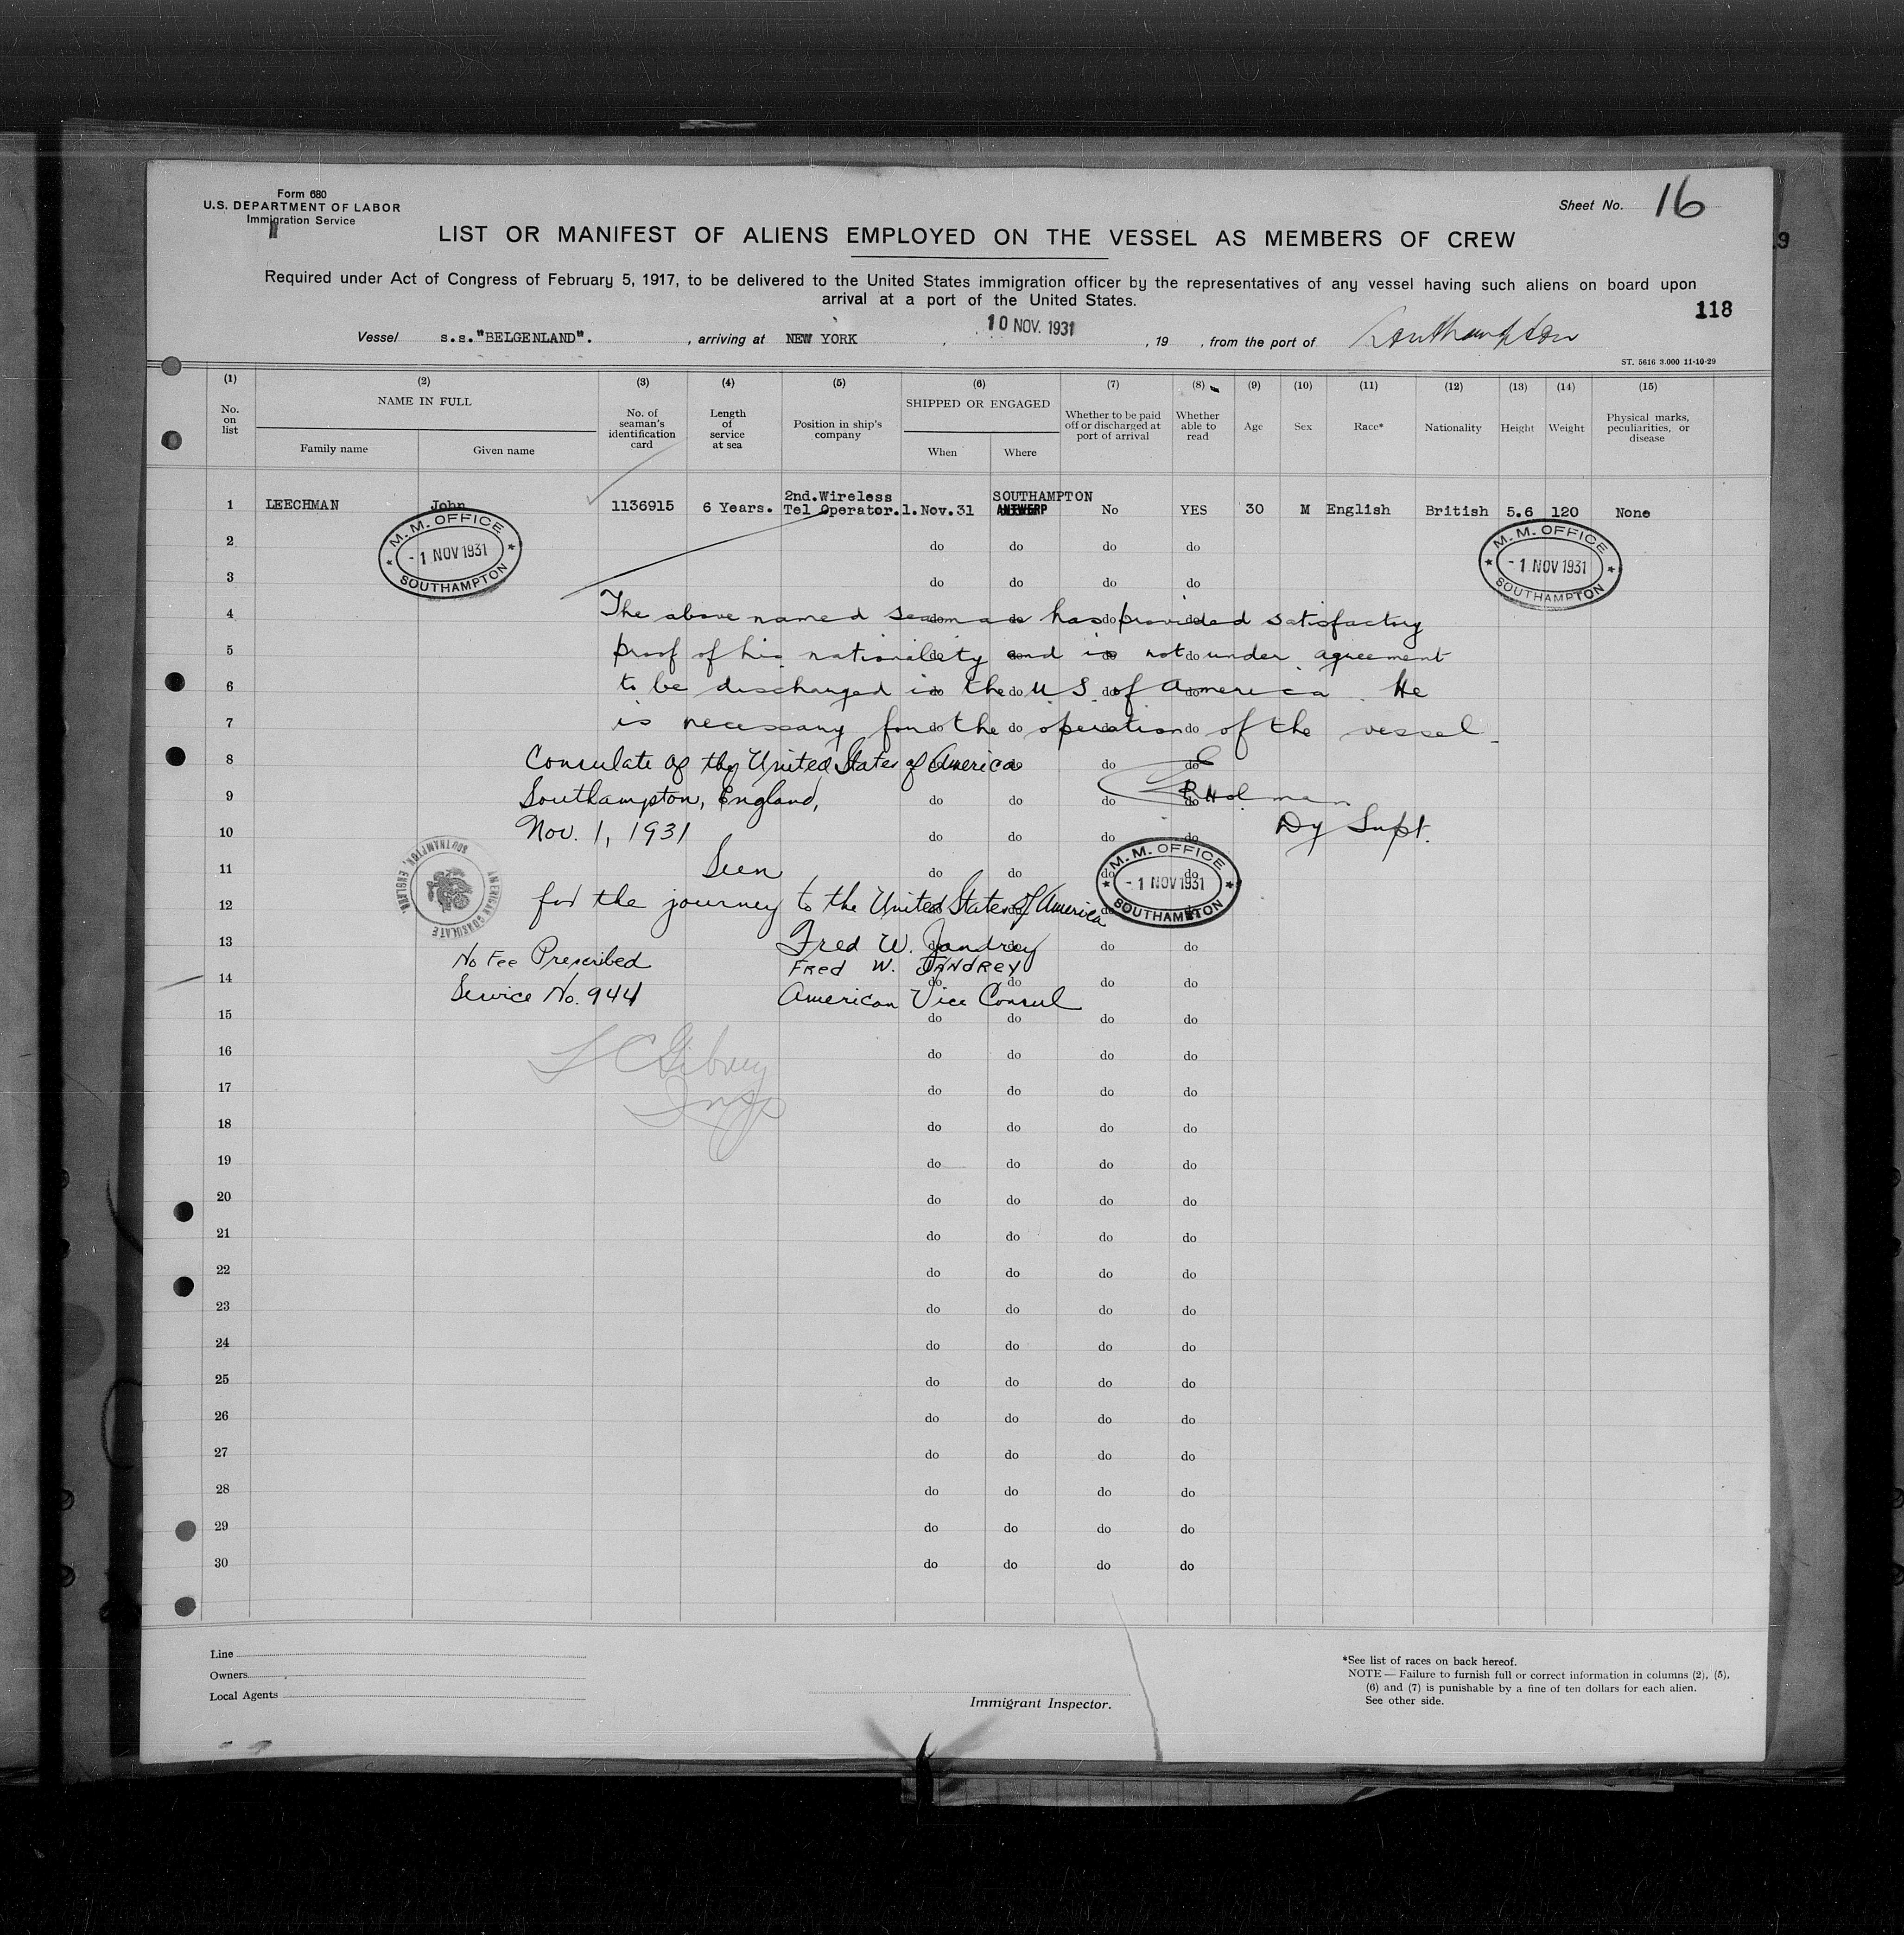 Form 680
U.S. DEPARTMENT OF LABOR
Immigration Service
Sheet No. 16
LIST OR MANIFEST OF ALIENS EMPLOYED ON THE VESSEL AS MEMBERS OF CREW
Required under Act of Congress of February 5, 1917, to be delivered to the United States immigration officer by the representatives of any vessel having such aliens on board upon
arrival at a port of the United States.
118
Vessel s.s."BELGENLAND". , arriving at NEW YORK , 10 NOV. 1931 , 19 , from the port of Southampton
ST. 5616 3.000 11-10-29
(1) (2) (3) (4) (5) (6) (7) (8) (9) (10) (11) (12) (13) (14) (15)
No. on list NAME IN FULL Family name Given name No. of seaman's identification card Length of service at sea Position in ship's company SHIPPED OR ENGAGED When Where Whether to be paid off or discharged at port of arrival Whether able to read Age Sex Race* Nationality Height Weight Physical marks, peculiarities, or disease
1 LEECHMAN John 1136915 6 Years. 2nd.Wireless Tel Operator. 1.Nov.31 SOUTHAMPTON ANTWERP No YES 30 M English British 5.6 120 None
M. M. OFFICE
- 1 NOV 1931
SOUTHAMPTON
M. M. OFFICE
- 1 NOV 1931
SOUTHAMPTON
2 do do do do
3 do do do do
4 do do do do
The above named seaman has provided satisfactory
5 do do do do
proof of his nationality and is not under agreement
6 do do do do
to be discharged in the U S of America. He
7 do do do do
is necessary for the operation of the vessel.
8 do do do do
Consulate of the United States of America
9 do do do do
Southampton, England,
Holman
10 do do do do
Nov. 1, 1931
Dy Supt.
11 do do do do
Seen
AMERICAN CONSULATE
SOUTHAMPTON, ENGLAND.
M. M. OFFICE
- 1 NOV 1931
SOUTHAMPTON
12 do do do do
for the journey to the United States of America
13 do do do do
Fred W. Jandrey
No Fee Prescribed FRED W. JANDREY
14 do do do do
Service No. 944 American Vice Consul
15 do do do do
16 do do do do
17 do do do do
Insp
18 do do do do
19 do do do do
20 do do do do
21 do do do do
22 do do do do
23 do do do do
24 do do do do
25 do do do do
26 do do do do
27 do do do do
28 do do do do
29 do do do do
30 do do do do
Line
Owners
Local Agents
Immigrant Inspector.
*See list of races on back hereof.
NOTE — Failure to furnish full or correct information in columns (2), (5),
(6) and (7) is punishable by a fine of ten dollars for each alien.
See other side.